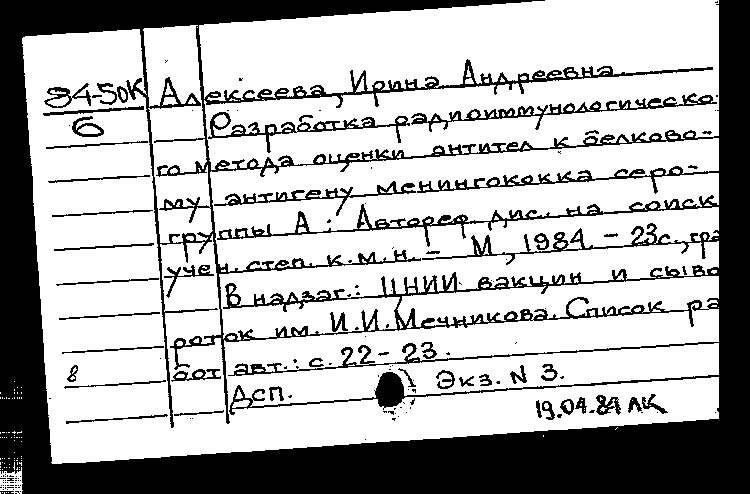 84-50К Алексеева, Ирина Андреевна.
6 Разработка радиоиммунологическо-
го метода оценки антител к белково-
му антигену менингококка серо-
группы А : Автореф. дис. на соиск
учен. степ. к.м.н. - М., 1984. - 23с., гра
В надзаг.: ЦНИИ вакцин и сыво
роток им. И.И.Мечникова. Список ра
8 бот авт.: с. 22-23.
Дсп. Экз. N 3.
19.04.84 ЛК